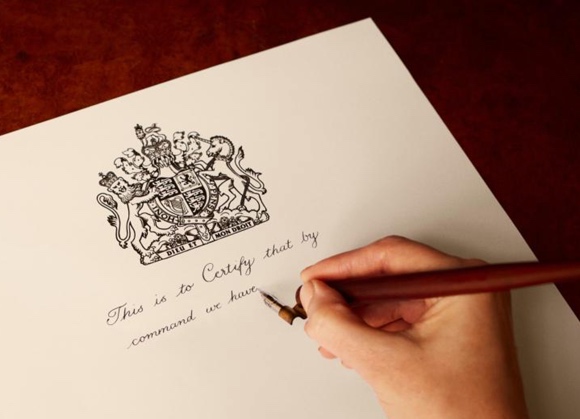 DIEU ET MON DROIT
This is to Certify that by
command we have